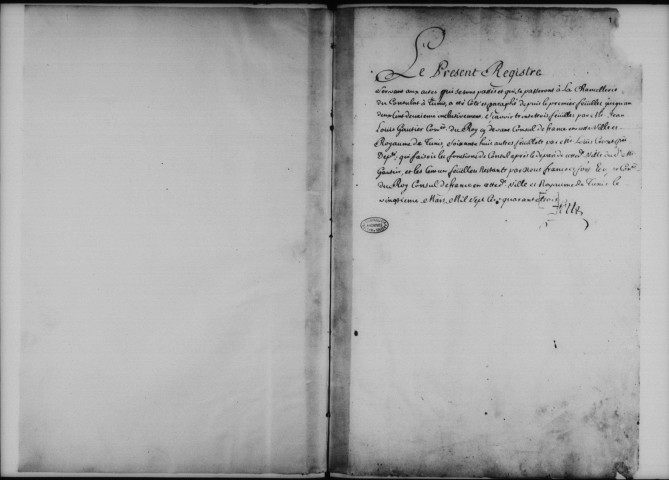 Le Present Registre
Servant aux actes qui se sont passés et qui se passeront à La Chancellerie
du Consulat à Tunis, a été Coté et paraphé depuis le premier feuillet jusqu'au
deux Cens deuxieme inclusivement, Sçavoir trente trois feuillets par Mr Jean
Louis Gautier Conr. du Roy cy devant Consul de france en cette Ville et
Royaume de Tunis, Soixante huit autres feuillets par Mr Louis
Dep.té, qui faisoit les fonctions de Consul après le depart de cette Ville du d. Mr
Gautier, et les Cent un feuillets Restants par Nous françois fort Ecr, Conr.
du Roy Consul de france en cette d. Ville et Royaume de Tunis le
vingtieme Mars Mil Sept Cens quarante trois
fort